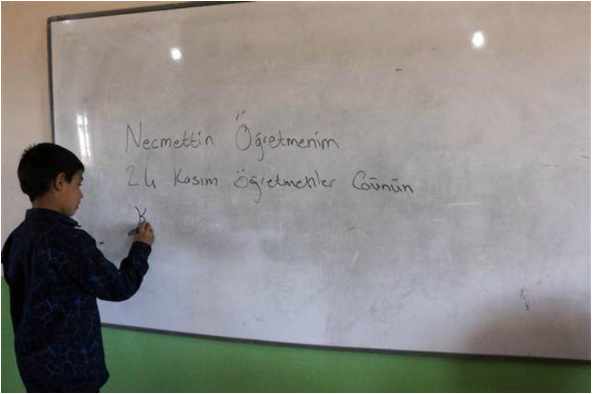 Necmettin Öğretmenim
24 Kasım Öğretmenler Günün
K